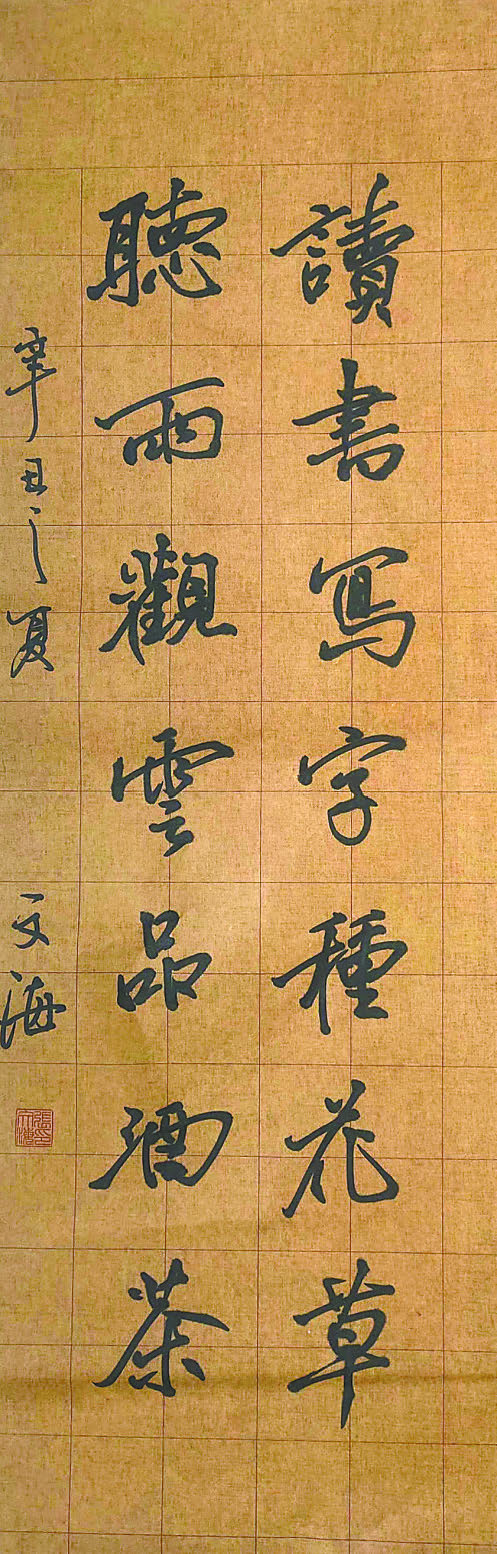 讀書寫字種花草
聽雨觀雲品酒茶
辛丑之夏 文海